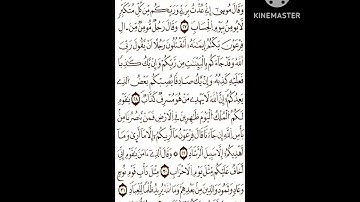 وَقَالَ مُوسَىٰٓ إِنِّي عُذْتُ بِرَبِّي وَرَبِّكُم مِّن كُلِّ مُتَكَبِّرٍ
لَّا يُؤْمِنُ بِيَوْمِ ٱلْحِسَابِ ٢٧ وَقَالَ رَجُلٌ مُّؤْمِنٌ مِّنْ ءَالِ
فِرْعَوْنَ يَكْتُمُ إِيمَٰنَهُۥٓ أَتَقْتُلُونَ رَجُلًا أَن يَقُولَ رَبِّيَ
ٱللَّهُ وَقَدْ جَآءَكُم بِٱلْبَيِّنَٰتِ مِن رَّبِّكُمْ وَإِن يَكُ كَٰذِبًا
فَعَلَيْهِ كَذِبُهُۥ وَإِن يَكُ صَادِقًا يُصِبْكُم بَعْضُ ٱلَّذِي
يَعِدُكُمْ إِنَّ ٱللَّهَ لَا يَهْدِي مَنْ هُوَ مُسْرِفٌ كَذَّابٌ ٢٨ يَٰقَوْمِ
لَكُمُ ٱلْمُلْكُ ٱلْيَوْمَ ظَٰهِرِينَ فِي ٱلْأَرْضِ فَمَن يَنصُرُنَا مِنۢ
بَأْسِ ٱللَّهِ إِن جَآءَنَا قَالَ فِرْعَوْنُ مَآ أُرِيكُمْ إِلَّا مَآ أَرَىٰ وَمَآ
أَهْدِيكُمْ إِلَّا سَبِيلَ ٱلرَّشَادِ ٢٩ وَقَالَ ٱلَّذِيٓ ءَامَنَ يَٰقَوْمِ إِنِّيٓ
أَخَافُ عَلَيْكُم مِّثْلَ يَوْمِ ٱلْأَحْزَابِ ٣٠ مِثْلَ دَأْبِ قَوْمِ نُوحٍ
وَعَادٍ وَثَمُودَ وَٱلَّذِينَ مِنۢ بَعْدِهِمْ وَمَا ٱللَّهُ يُرِيدُ ظُلْمًا لِّلْعِبَادِ ٣١
Made with
KINEMASTER